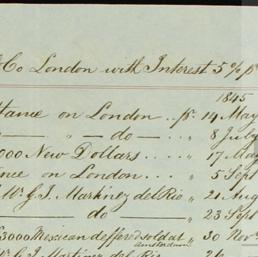 & Co London with Interest 5 % p
1845
ttance on London .. pr. 14 May
— " — do — " 8 July
000 New Dollars .... " 17 May
nce on London .... " 5 Sept
Wm. G. J. Martinez del Rio " 21 Aug
— do — " 23 Sept
£3000 Mexican deffered sold at Amsterdam " 30 Nov
G. J. Martinez del Rio " 26